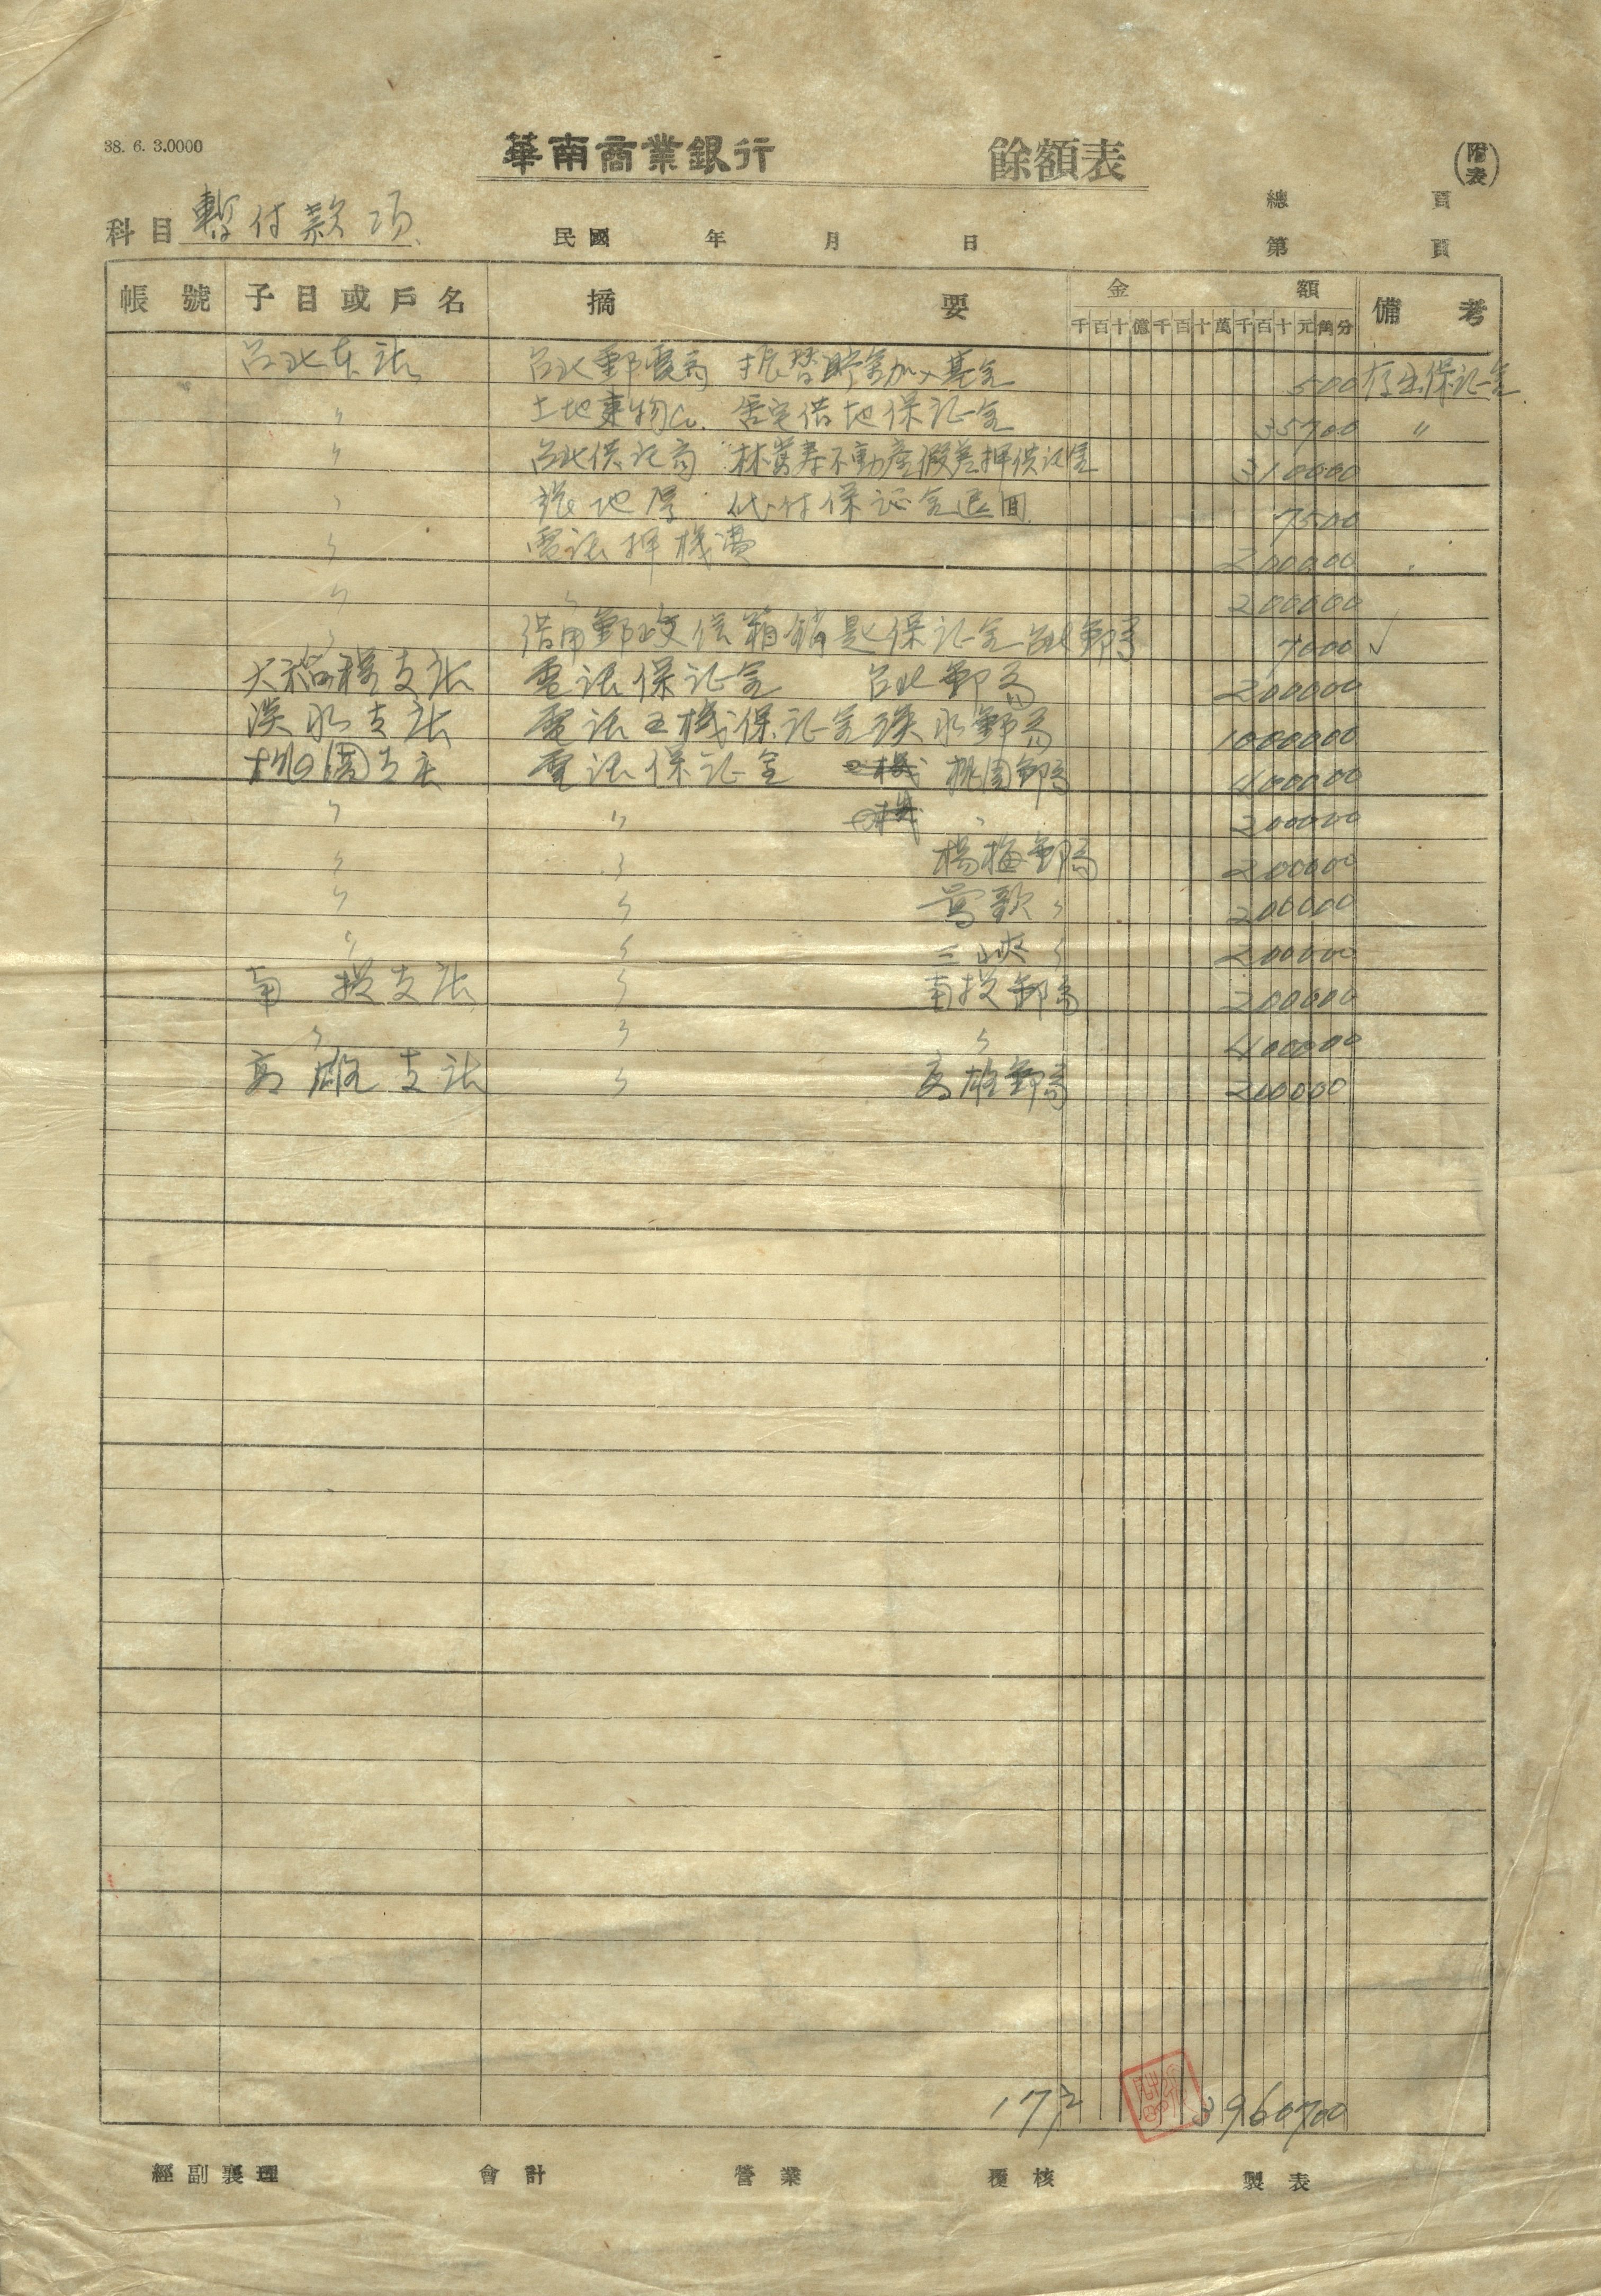 38. 6. 3.0000
華南商業銀行 餘額表 (附表)
總 頁
科目 暫付款項 民國 年 月 日 第 頁
帳號 子目或戶名 摘要 金額 備考
千百十億千百十萬千百十元角分
台北支店 台北郵電局 振替貯金加入基金 500 存出保証金
〃 土地建物Co. 舍宅借地保証金 35700 〃
〃 台北供託局 林萬寿不動産假差押供託金 310000
〃 代付保証金退回 7500
〃 電話押機費 200000
〃 〃 200000
〃 借用郵政信箱鎖匙保証金 台北郵局 7000 ✓
大稻埕支店 電話保証金 台北郵局 200000
淡水支店 電話五機保証金 淡水郵局 1000000
桃園支店 電話保証金 桃園郵局 400000
〃 〃 〃 200000
〃 〃 楊梅郵局 200000
〃 〃 鶯歌〃 200000
〃 〃 三峽〃 200000
南投支店 〃 南投郵局 200000
〃 〃 〃 400000
高雄支店 〃 高雄郵局 200000
17口 3960700
經副襄理 會計 營業 覆核 製表